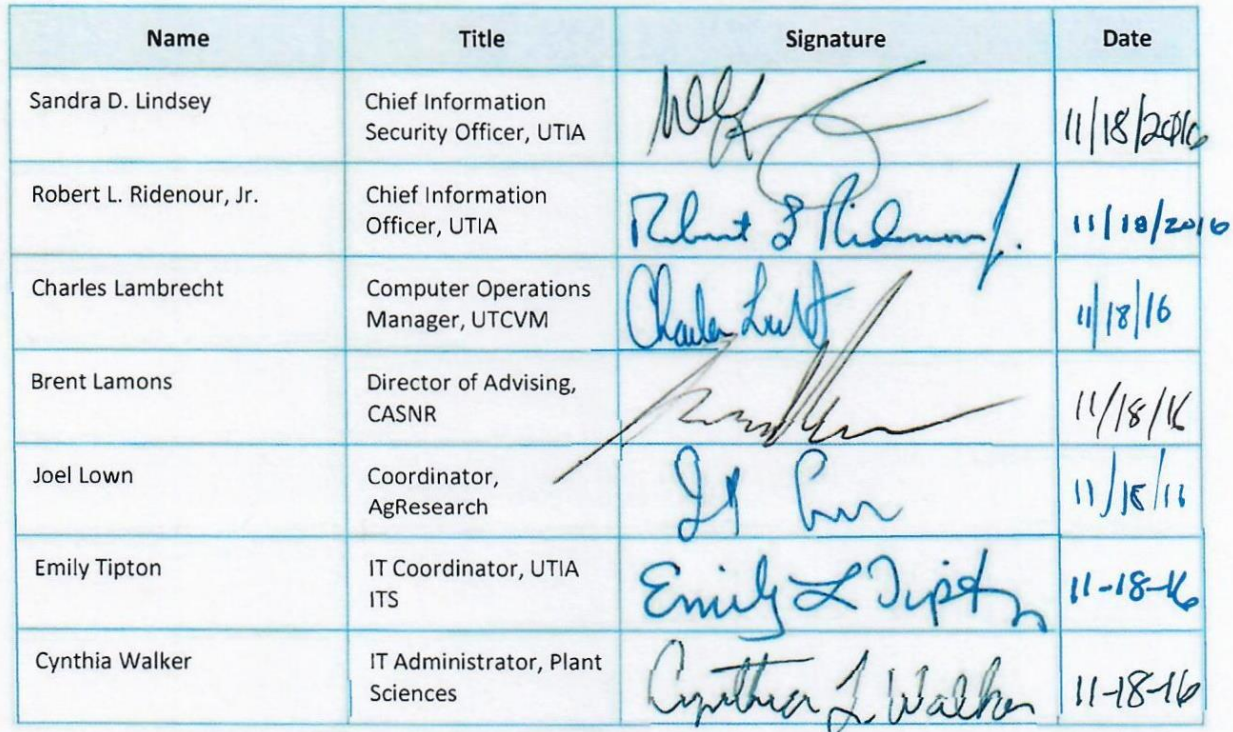 Name Title Signature Date
Sandra D. Lindsey Chief Information
Security Officer, UTIA 11/18/2016
Robert L. Ridenour, Jr. Chief Information
Officer, UTIA Robert L Ridenour Jr. 11/18/2016
Charles Lambrecht Computer Operations
Manager, UTCVM Charles 11/18/16
Brent Lamons Director of Advising,
CASNR 11/18/16
Joel Lown Coordinator,
AgResearch 11/18/16
Emily Tipton IT Coordinator, UTIA
ITS Emily L Tipton 11-18-16
Cynthia Walker IT Administrator, Plant
Sciences Cynthia L. Walker 11-18-16